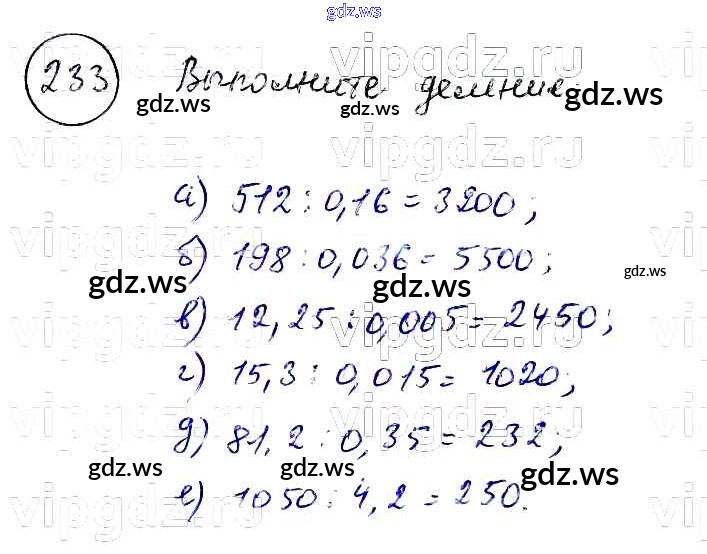 gdz.ws
vipgdz.ru
233 Выполните деление.
gdz.ws gdz.ws gdz.ws
vipgdz.ru
а) 512 : 0,16 = 3200;
б) 198 : 0,036 = 5500;
gdz.ws gdz.ws gdz.ws
в) 12,25 : 0,005 = 2450;
vipgdz.ru
г) 15,3 : 0,015 = 1020;
vipgdz.ru
д) 81,2 : 0,35 = 232;
gdz.ws gdz.ws gdz.ws
е) 1050 : 4,2 = 250.
vipgdz.ru